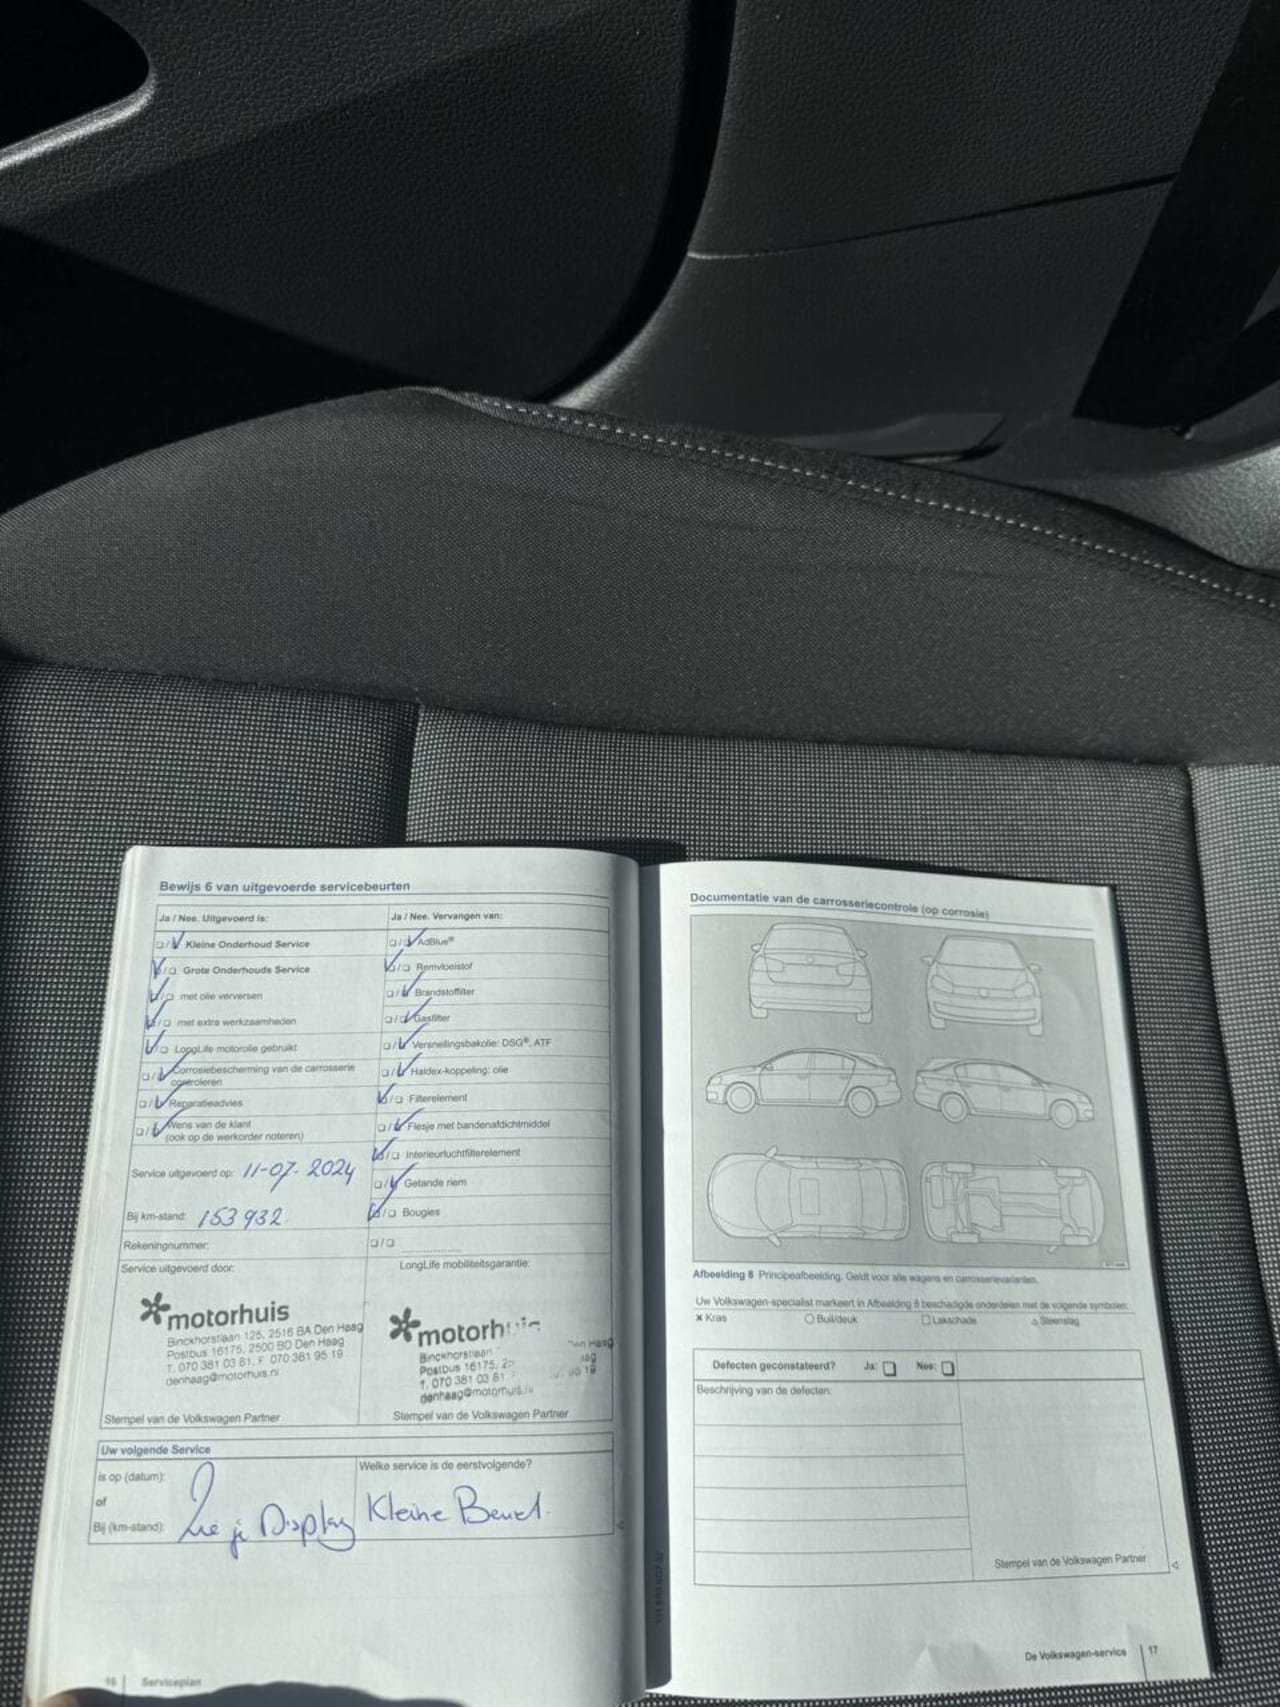 Bewijs 6 van uitgevoerde servicebeurten
Ja / Nee. Uitgevoerd is:
Kleine Onderhoud Service
Grote Onderhouds Service
met olie verversen
met extra werkzaamheden
LongLife motorolie gebruikt
Corrosiebescherming van de carrosserie
controleren
Reparatieadvies
Wens van de klant
(ook op de werkorder noteren)
Service uitgevoerd op: 11-07-2024
Bij km-stand: 153 932
Rekeningnummer:
Ja / Nee. Vervangen van:
AdBlue®
Remvloeistof
Brandstoffilter
Gasfilter
Versnellingsbakolie: DSG®, ATF
Haldex-koppeling: olie
Filterelement
Flesje met bandenafdichtmiddel
Interieurluchtfilterelement
Getande riem
Bougies
Service uitgevoerd door:
motorhuis
Binckhorstlaan 125, 2516 BA Den Haag
Postbus 16175, 2500 BD Den Haag
T. 070 381 03 81, F 070 381 95 19
denhaag@motorhuis.nl
Stempel van de Volkswagen Partner
LongLife mobiliteitsgarantie:
motorhuis
Binckhorstlaan
Den Haag
Postbus 16175,
T. 070 381 03 81
denhaag@motorhuis.nl
Stempel van de Volkswagen Partner
Uw volgende Service
is op (datum):
of
Bij (km-stand):
Zie je Display
Welke service is de eerstvolgende?
Kleine Beurt.
16 | Serviceplan
Documentatie van de carrosseriecontrole (op corrosie)
Afbeelding 8 Principeafbeelding. Geldt voor alle wagens en carrosserievarianten.
Uw Volkswagen-specialist markeert in Afbeelding 8 beschadigde onderdelen met de volgende symbolen:
× Kras
○ Buil/deuk
□ Lakschade
△ Steenslag
Defecten geconstateerd? Ja: □ Nee: □
Beschrijving van de defecten:
Stempel van de Volkswagen Partner
De Volkswagen-service | 17